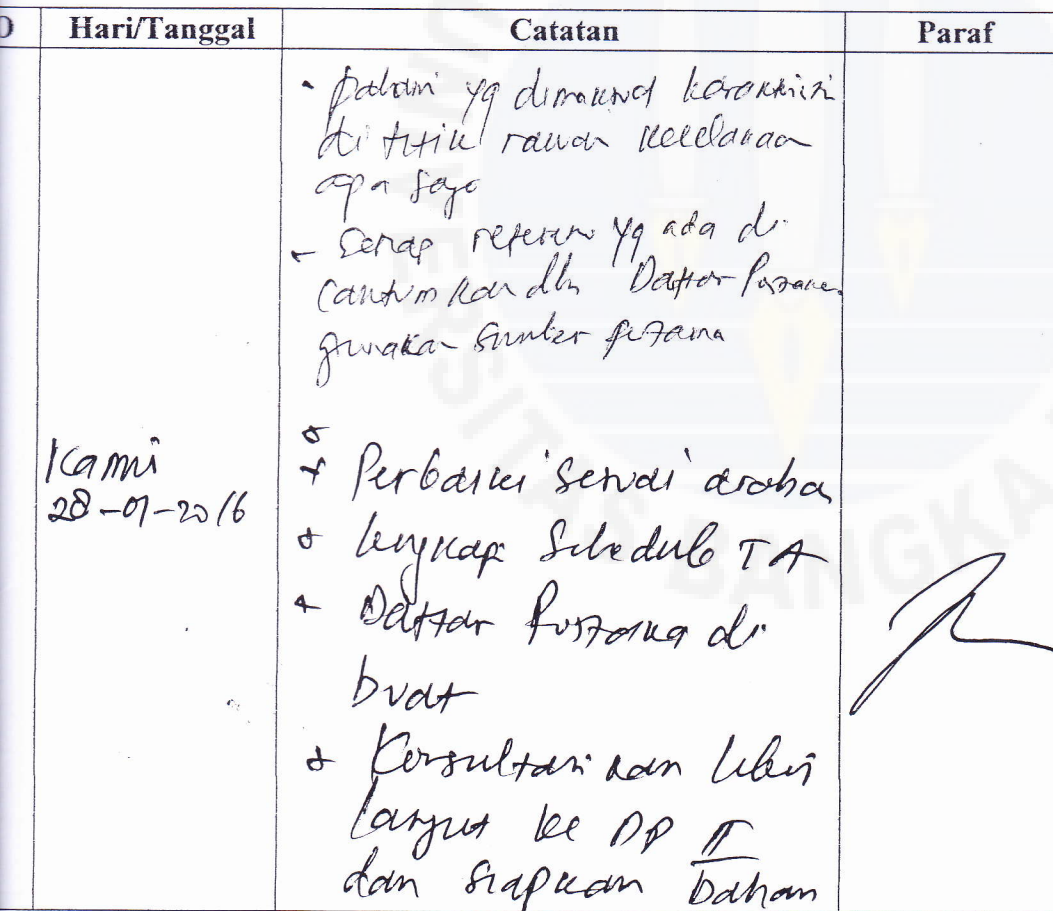 Hari/Tanggal Catatan Paraf
- pahami yg dimaksud karakteristik
di titik rawan kecelakaan
apa saja
- Setiap referensi yg ada di
cantumkan dlm Daftar Pustaka
gunakan sumber pertama
Kamis
28-01-2016
+ Perbaiki sesuai arahan
+ lengkapi Schedule TA
+ Daftar Pustaka di
buat
+ Konsultasikan lebih
lanjut ke DP II
dan siapkan bahan
UNIVERSITAS BANGKA